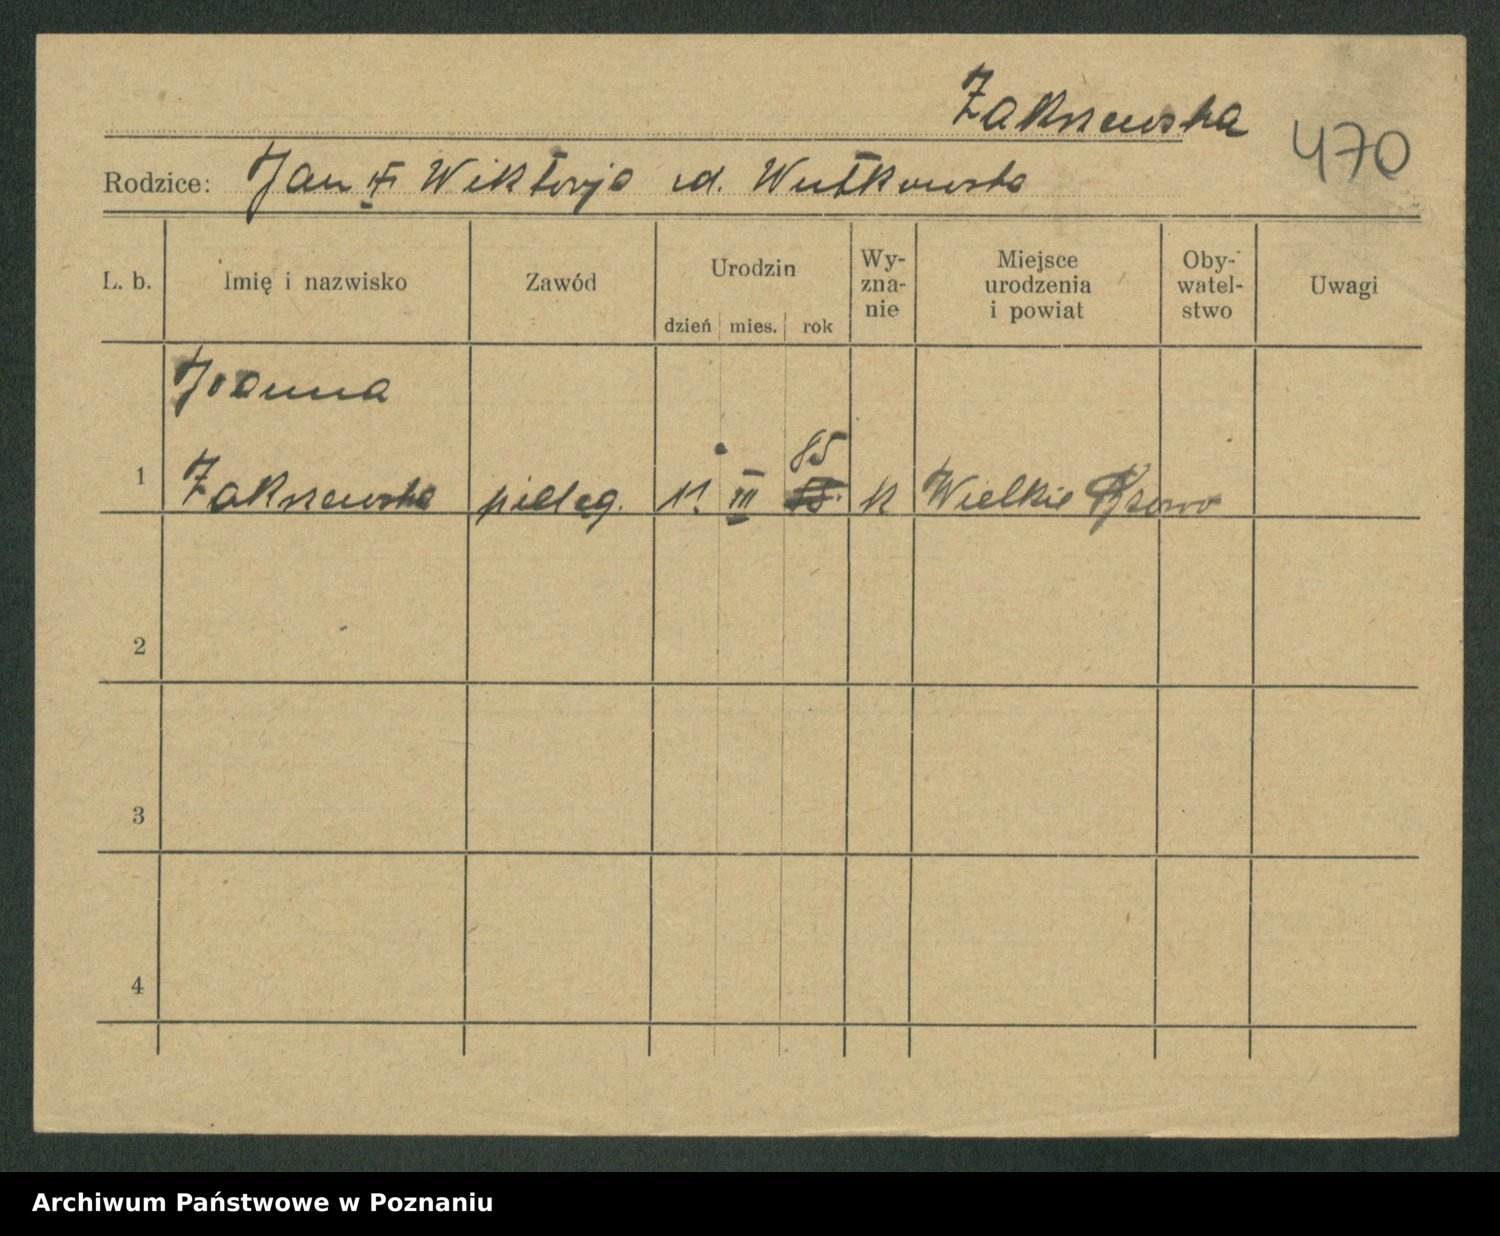 Zakrzewska
470
Rodzice: Jan i Wiktorja zd. Wutkowska
L. b. Imię i nazwisko Zawód Urodzin dzień mies. rok Wy-zna-nie Miejsce urodzenia i powiat Oby-watel-stwo Uwagi
Joanna
85
1 Zakrzewska pielęg. 11. III k Wielkie
2
3
4
Archiwum Państwowe w Poznaniu